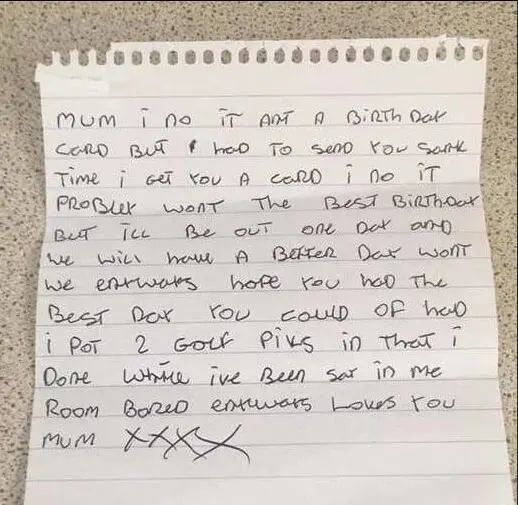 MUM i no iT ANT A BiRTHDAY
CARD BUT I HAD TO SEND YOU SOME
Time i GET YOU A CARD i no iT
PROBLEY WONT THE BEST BIRTHDAY
BUT ILL BE OUT ONE DAY AND
WE WILL HAVE A BETTER DAY WONT
WE ENYWAYS HOPE YOU HAD THE
BEST DAY YOU COULD OF HAD
i POT 2 GOLF PiKS in THAT i
DONE WHILE iVE BEEN SAT in ME
ROOM BORED ENYWAYS LOVES YOU
MUM XXXX